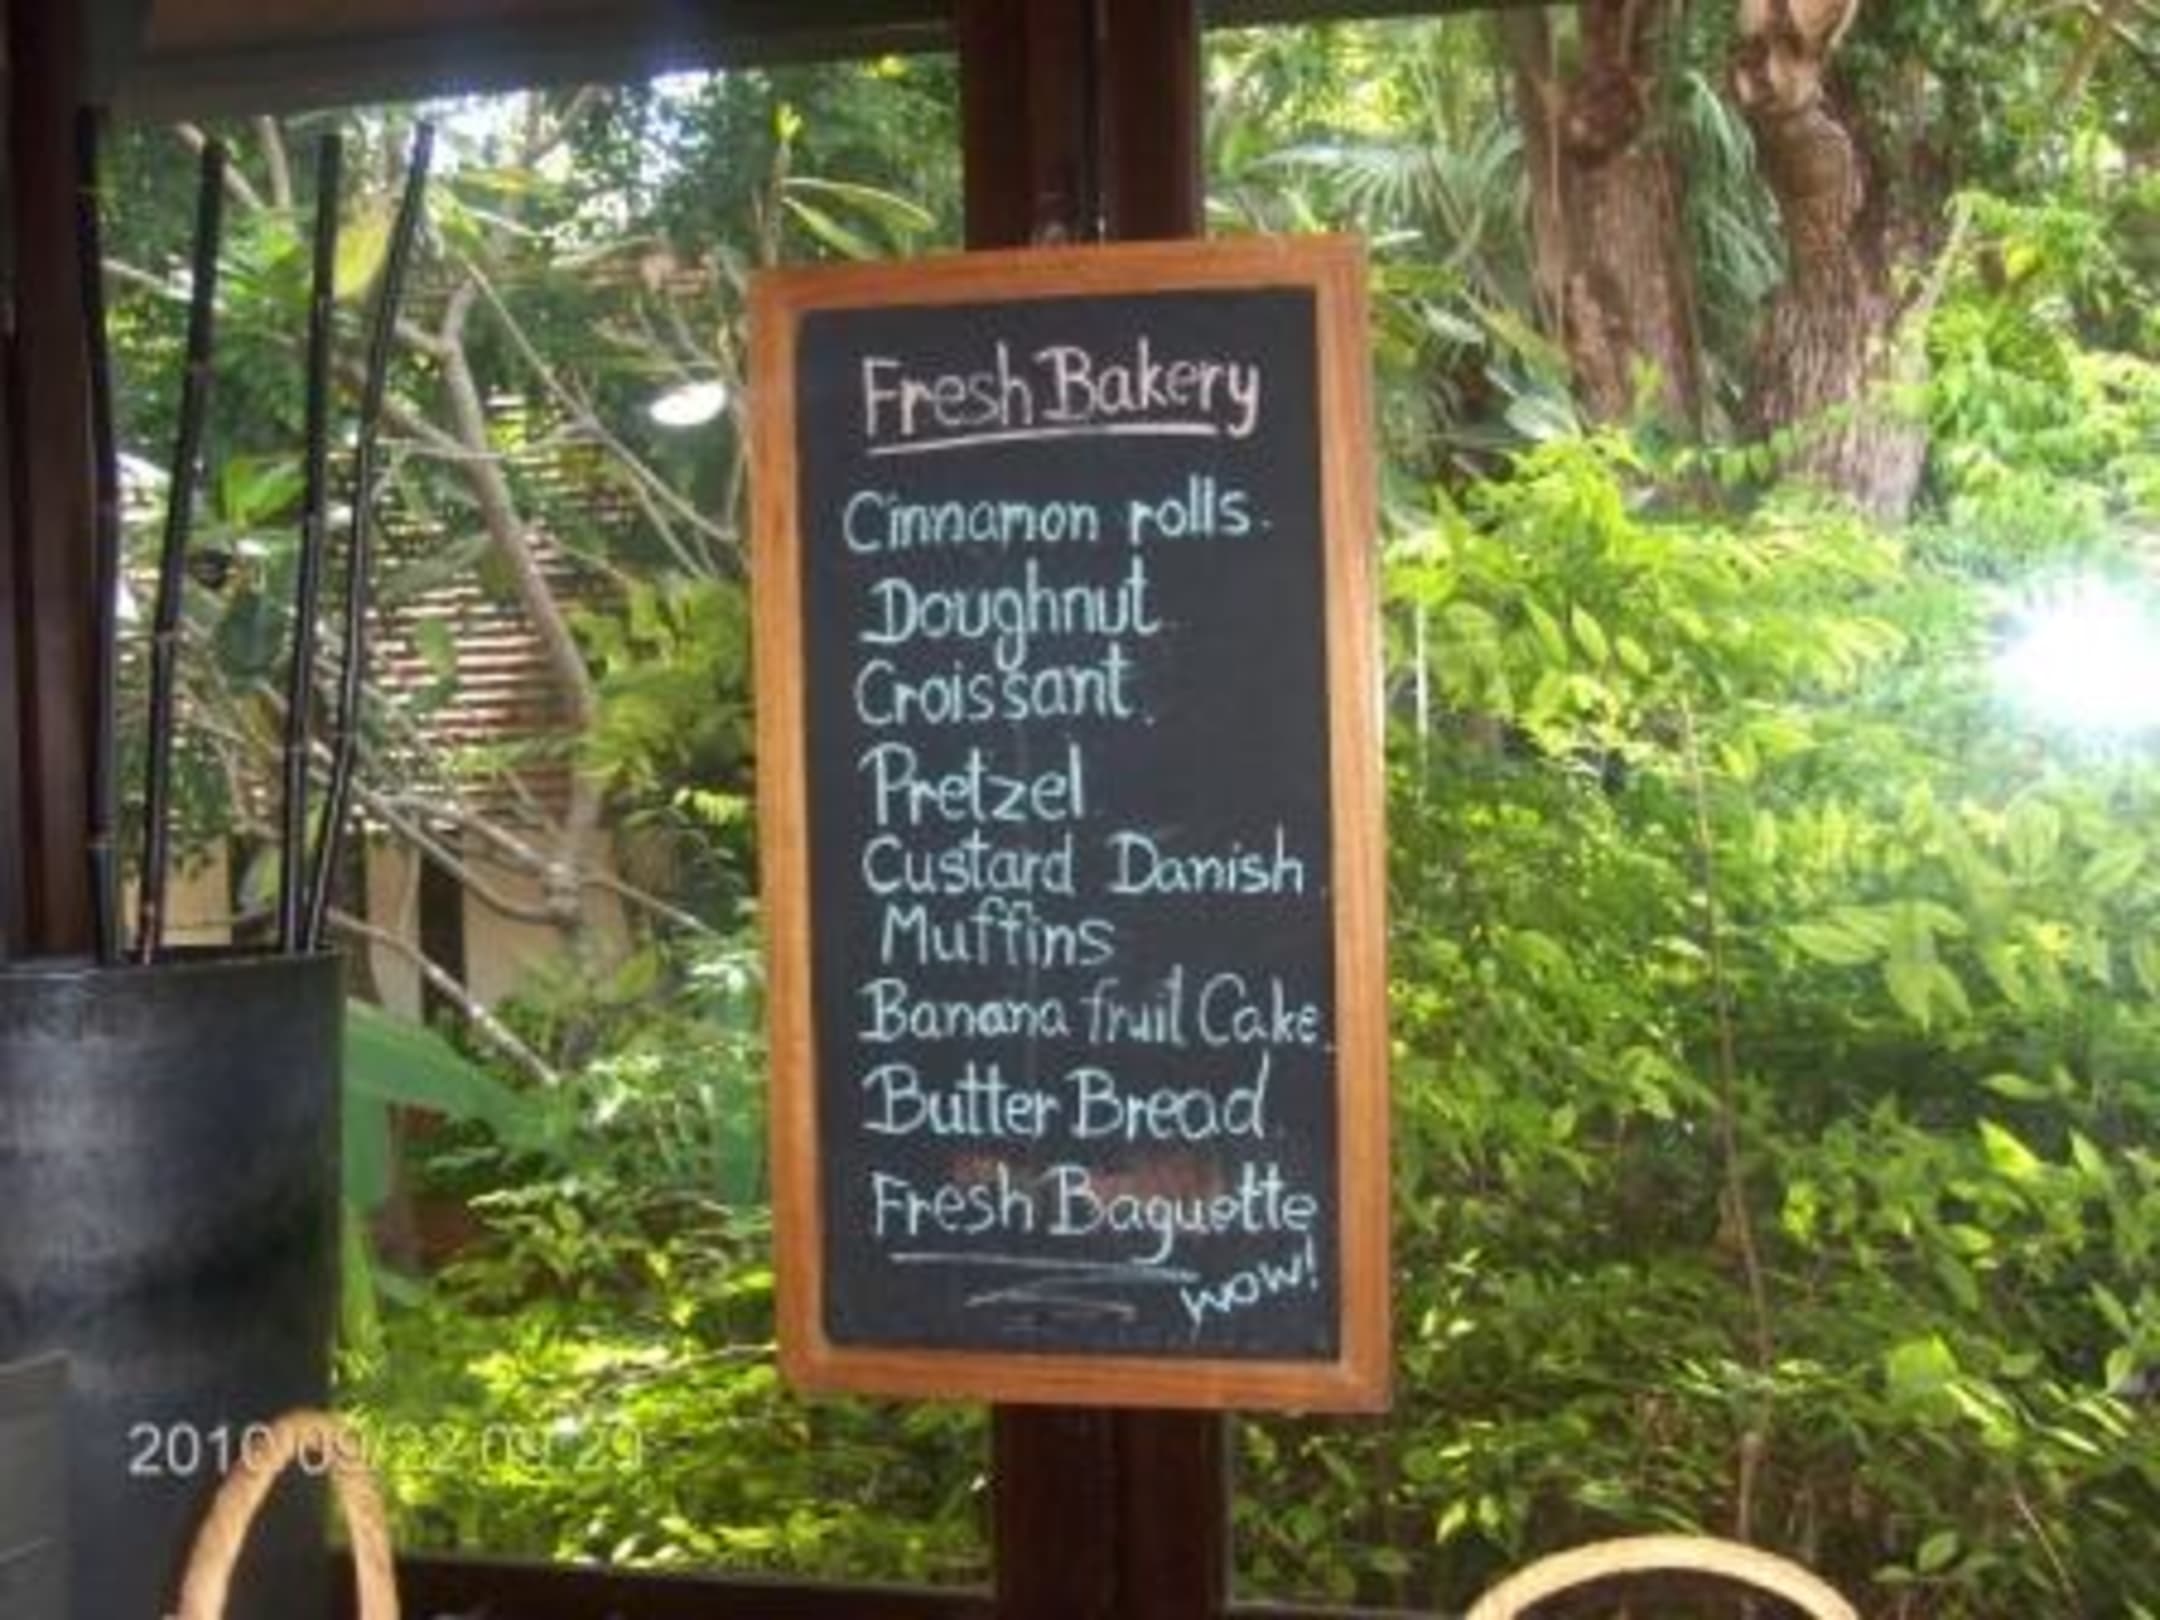 Fresh Bakery
Cinnamon rolls.
Doughnut
Croissant.
Pretzel
Custard Danish
Muffins
Banana fruit Cake.
Butter Bread
Fresh Baguette
wow!
2010/09/22 09:29